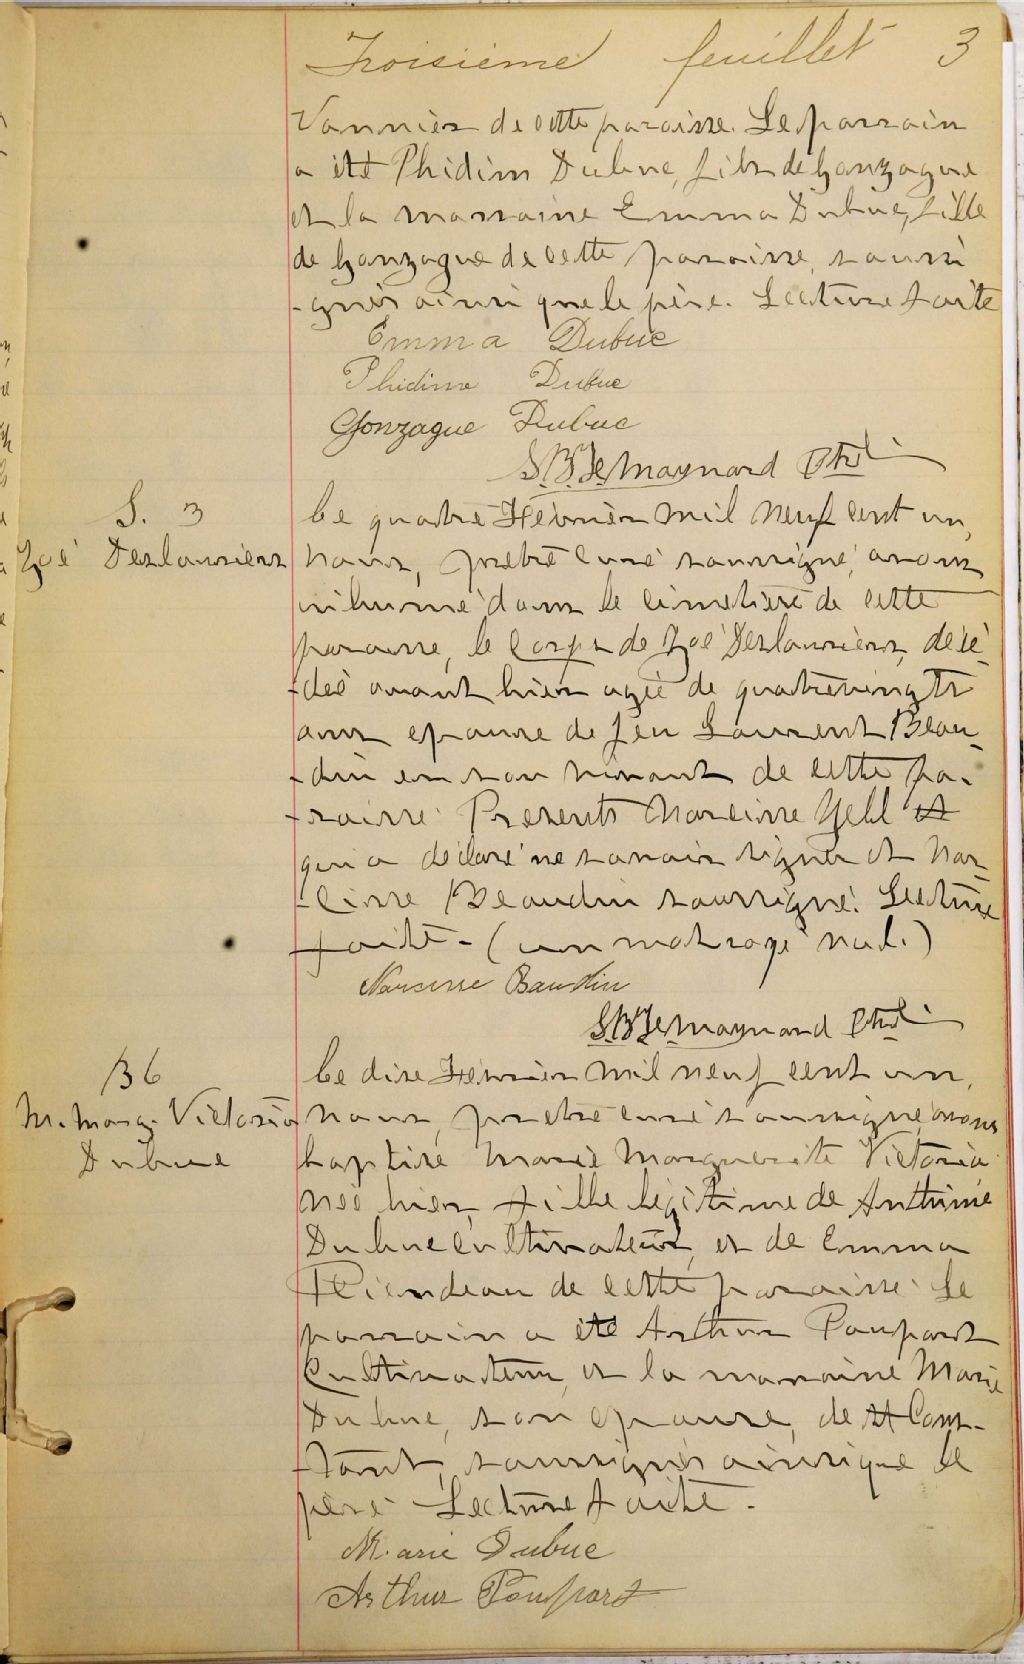 Troisième feuillet 3
Vannier de cette paroisse. Le parrain
a été Phidim Dubuc, fils de Gonzague
et la marraine Emma Dubuc, fille
de Gonzague de cette paroisse, soussi
-gnés ainsi que le père. Lecture faite
Emma Dubuc
Phidime Dubuc
Gonzague Dubuc
S.B.Lemaynard Ptre
S. 3
Zoé Deslauriers
Le quatre Février mil neuf cent un,
nous, prêtre curé soussigné, avons
inhumé dans le cimetière de cette
paroisse, le corps de Zoé Deslauriers, décé-
-dée avant hier agée de quatrevingts
ans epouse de feu Laurent Beau-
-din en son vivant de cette pa-
-roisse. Presents Narcisse Yell et
qui a déclaré ne savoir signer et Nar-
-cisse Beaudin soussigné. Lecture
faite - (un mot rayé nul.)
Narcisse Baudin
S.B.Lemaynard Ptre
B 6
M. Marg. Victoria
Dubuc
Le dix Février mil neuf cent un,
nous, prêtre curé soussigné, avons
baptisé Marie Marguerite Victoria
née hier, fille légitime de Anthime
Dubuc cultivateur, et de Emma
Riendeau de cette paroisse. Le
parrain a été Arthur Poupart
Cultivateur, et la marraine Marie
Dubuc, son epouse, de St Cons-
-tant, soussignés ainsi que le
père. Lecture faite.
Marie Dubuc
Arthur Poupart